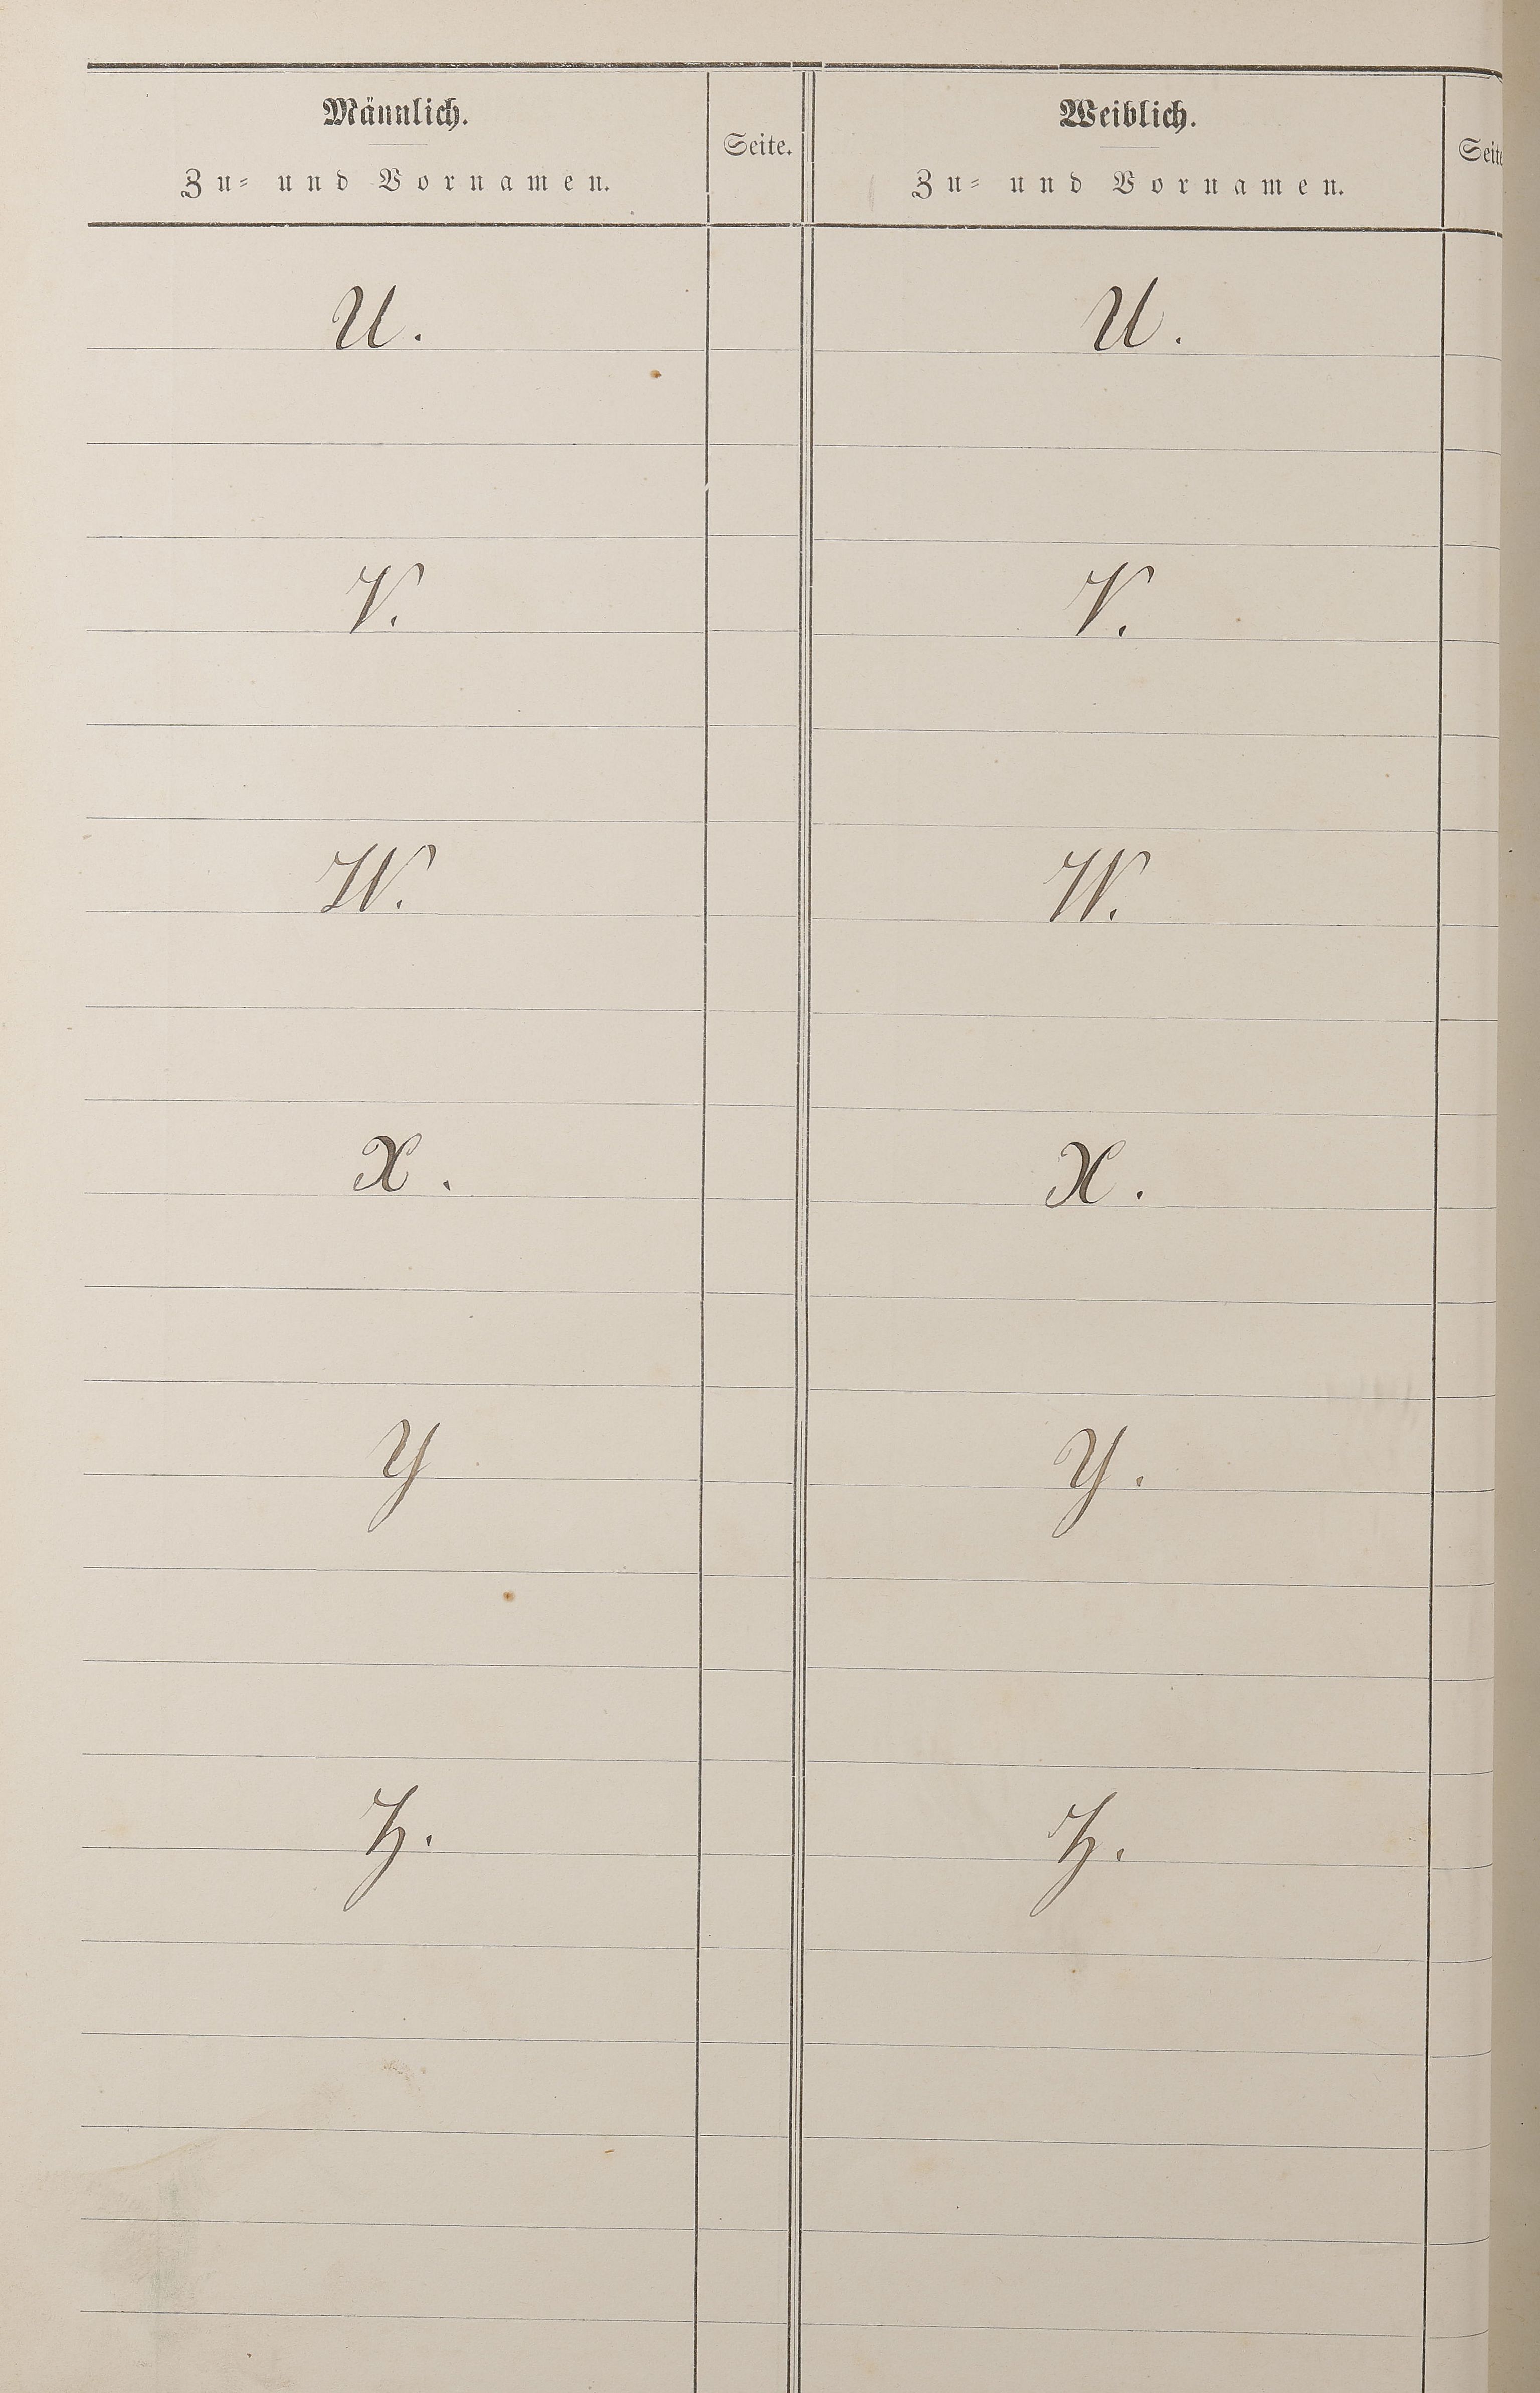 Männlich.
Zu- und Vornamen.
Seite.
Weiblich.
Zu- und Vornamen.
Seite
U.
U.
V.
V.
W.
W.
X.
X.
Y
Y.
Z.
Z.